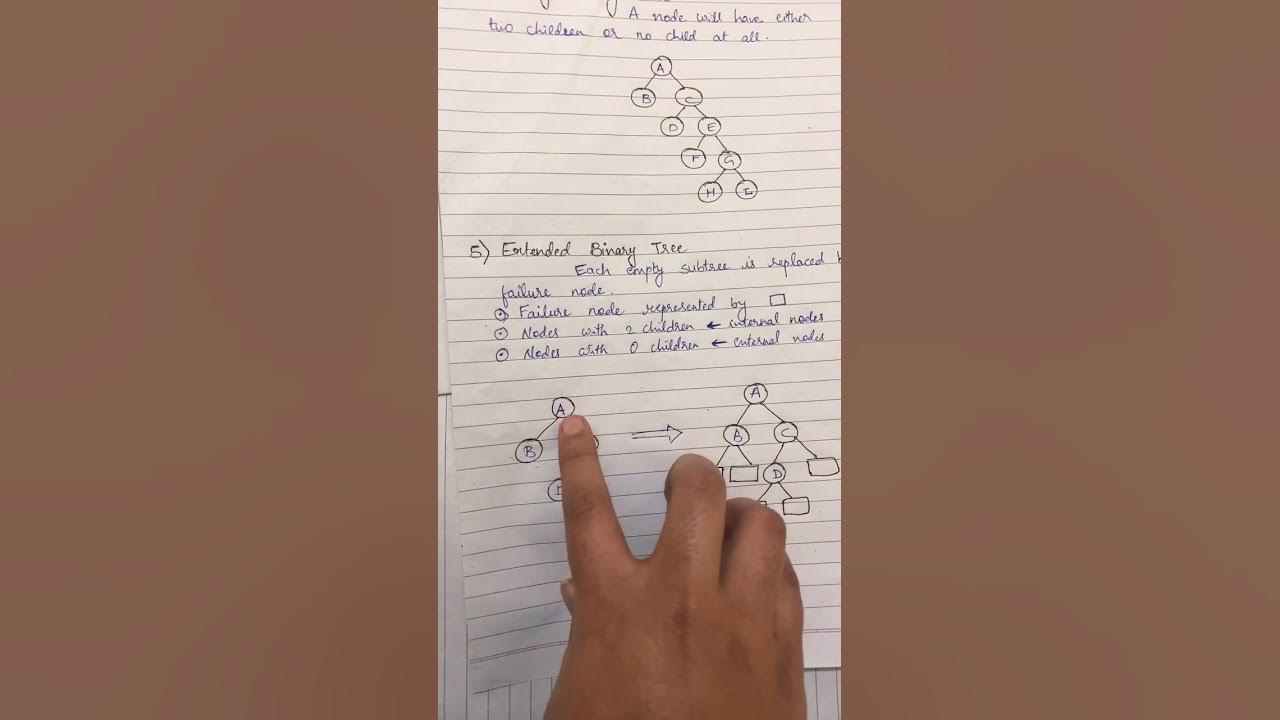 A node will have either
two children or no child at all.
A
B
C
D
E
F
G
H
I
5) Extended Binary Tree
Each empty subtree is replaced
failure node.
Failure node represented by
Nodes with 2 children ← internal nodes
Nodes with 0 children ← external nodes
A
A
B
B
C
D